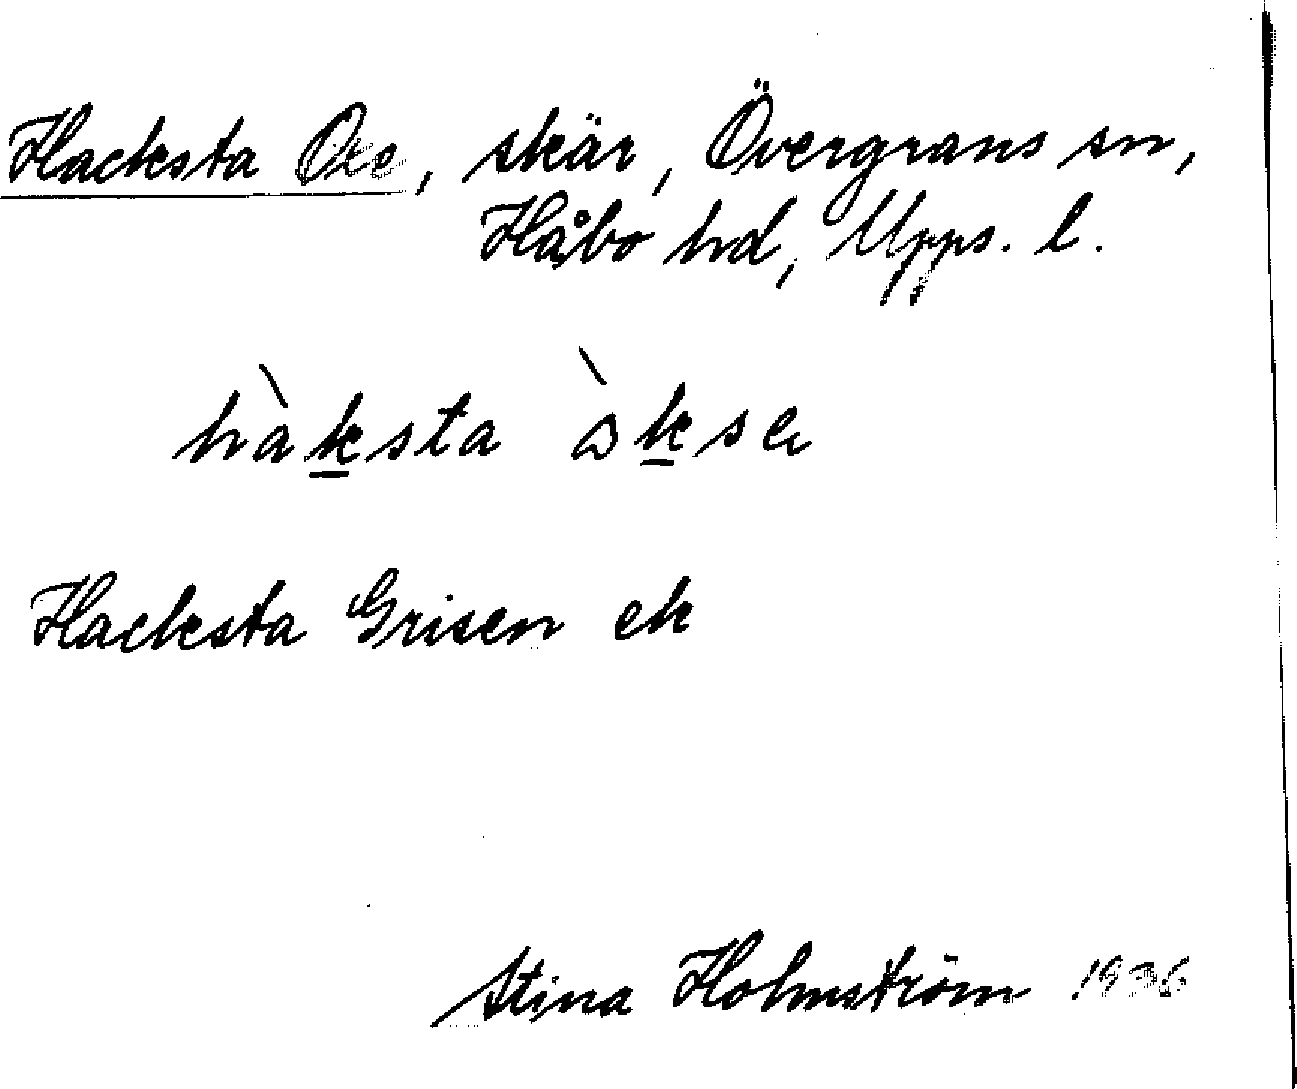 Hacksta Oxe, skär, Övergrans sn,
Håbo hd, Upps. l.
hàksta òkse
Hacksta Grisen ek
Stina Holmström 1936